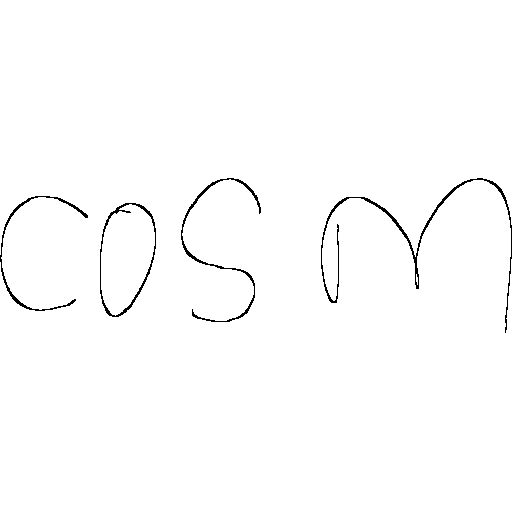 cos m